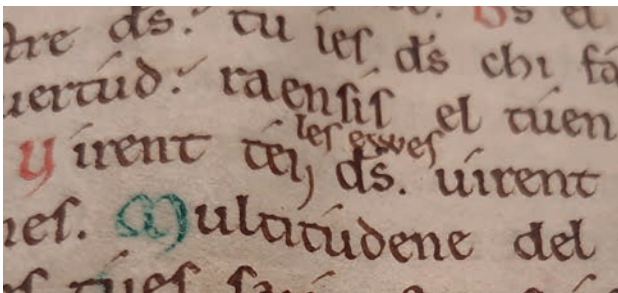 tre ds. tu ies ds chi
uertud. raensis el tuen
les ewes
Virent tei, ds. uirent
nes. Multitudene del